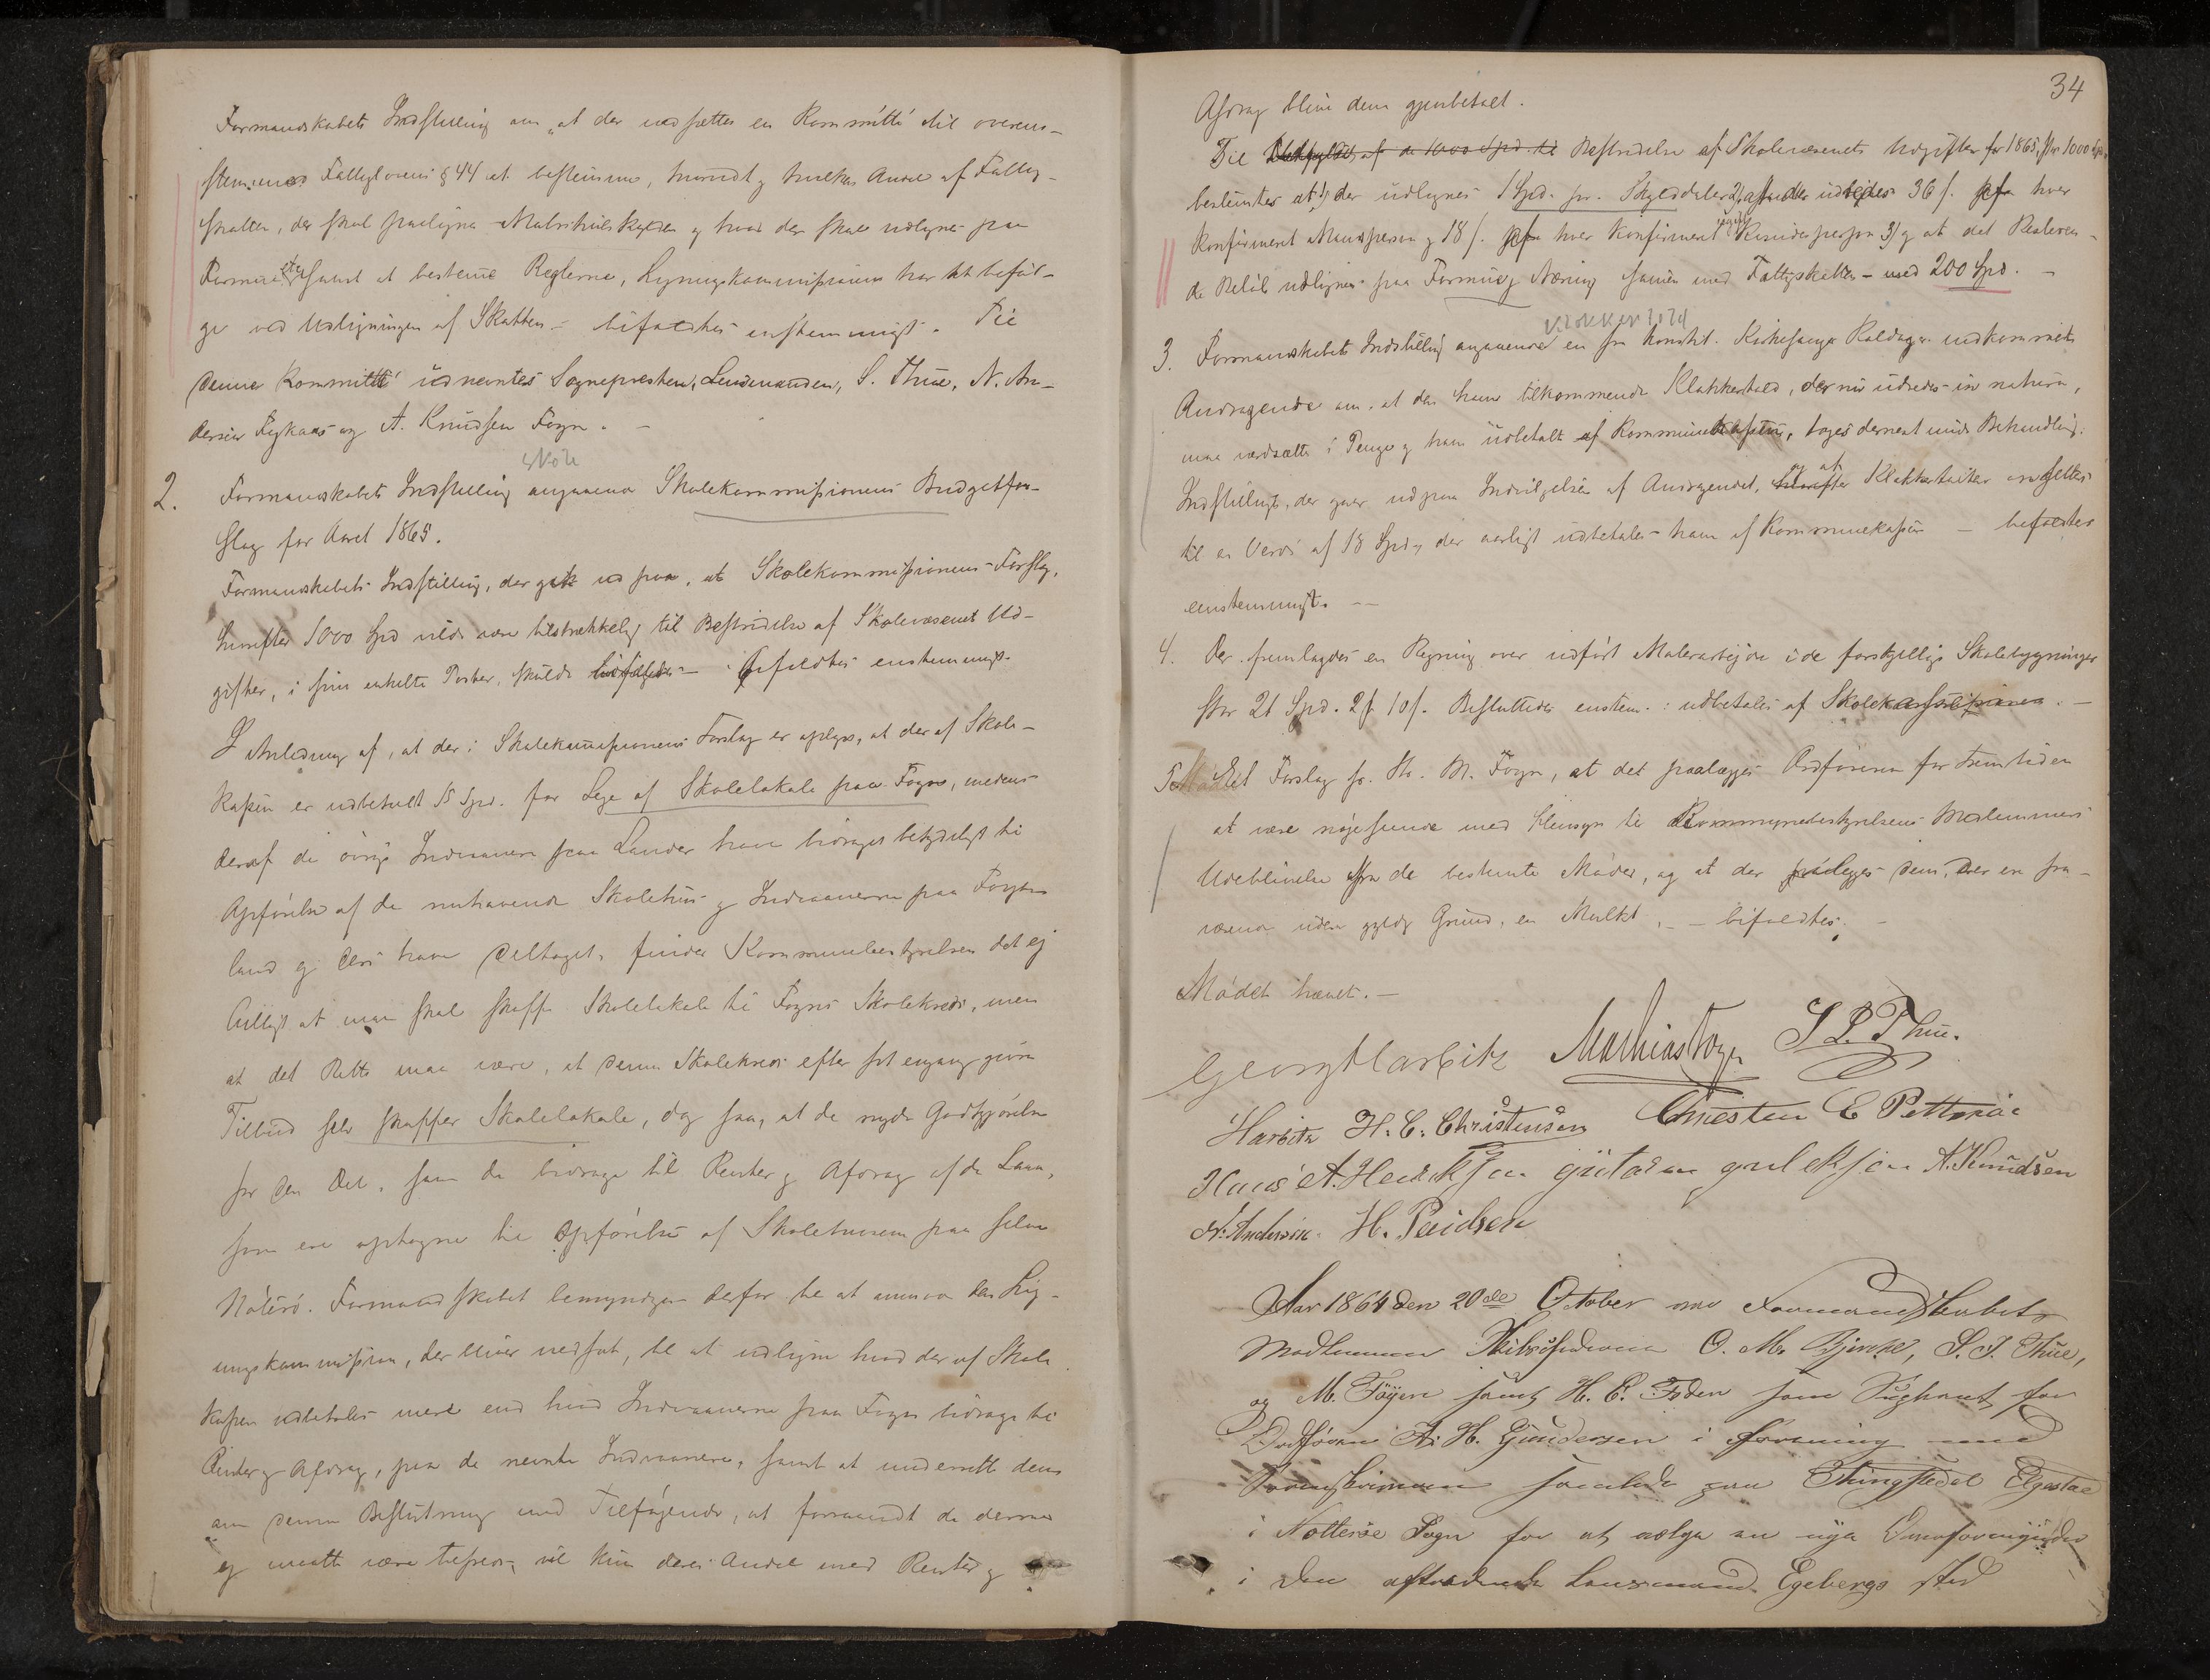 Formandskabets Indstilling om „at der nedsættes en Kommitté til overens-
stemmende Fattiglovens § 44 at bestemme, hvorvidt og hvilken Andel af Fattig-
skatten, der skal paalignes Matrikulskylden og hvad der skal udlignes paa
Formue etc samt at bestemme Reglerne, Ligningskommissionen har at befol-
ge ved Udligningen af Skatten – bifaldtes enstemmigt. Til
denne Kommitté udnævntes Sognepresten, Lensmanden, S. Thue, N. An-
dersen Fegkaas og A. Knudsen Føyn. –
Skole
2. Formandskabets Indstilling angaaende Skolekommissionens Budgetfor-
slag for Aaret 1865.
Formandskabets Indstilling, der gik ud paa, at Skolekommissionens Forslag,
hvorefter 1000 Spd vilde være tilstrækkelig til Bestridelse af Skolevæsenets Ud-
gifter, i sine enkelte Poster, skulde bifaldes – bifaldtes enstemmigt.
I Anledning af, at der i Skolekommissionens Forslag er oplyst, at der af Skole-
kassen er udbetalt 15 Spd. for Leje af Skolelokale paa Føyn, medens
deraf de øvrige Indvaanere paa Landet have bidraget betydeligt til
Opførelse af de nuhavende Skolehuse og Indvaanerne paa Føyn-
land ej deri have deltaget, finder Kommunebestyrelsen det ej
billigt at man skal skaffe Skolelokale til Føyns Skolekreds, men
at det Rette maa være, at denne Skolekreds efter sit engang givne
Tilbud selv skaffer Skolelokale, dog saa, at de nyde Godtgjørelse
for den Del, som de bidrage til Renter og Afdrag af de Laan,
som ere optagne til Opførelse af Skolehusene paa selve
Nøterø. Formandskabet bemyndiges derfor til at anmode den Lig-
ningskommission, der bliver nedsat, til at udligne hvad der af Skole-
kassen udbetales mere end hvad Indvaanerne paa Føyn bidrage til
Renter og Afdrag, paa de nævnte Indvaanere, samt at underrette dem
om denne Beslutning med Tilføjende, at forsaavidt de dermed
ej maatte være tilfreds, vil kun deres Andel med Renter og
34
Afdrag blive dem gjenbetalt.
Til Bestridelse af Skolevæsenets Udgifter for 1865, stor 1000 Spd,
bestemtes at 1) der udlignes 1 Spd. pr. Skylddaler 2) at der udredes 36 s. for hver
konfirmeret Mandsperson og 18 s. for hver konfirmeret Kvindesperson 3) og at det Resteren-
de Beløb udlignes paa Formue og Næring samen med Fattigskatten – med 200 Spd. –
Klokker told
3. Formandskabets Indstilling angaaende en fra konstit. Kirkesanger Kaldager indkommet
Andragende om, at den ham tilkommende Klokkertold, der nu udredes in natura,
maa værdsættes i Penge og ham udbetalt af Kommunekassen, toges dernæst under Behandling.
Indstillingen, der gaar ud paa Indvilgelsen af Andragendet, og at Klokkertolden ansættes
til en Værdi af 18 Spd, der aarligt udbetales ham af Kommunekassen – bifaldtes
enstemmigt. –
4. Der fremlagdes en Regning over udført Malerarbejde i de forskjellige Skolebygninger
stor 21 Spd. 2 ƒ 10 s. Besluttedes enstem.: udbetales af Skolekassen. –
5. Et Forslag fr. Hr. M. Føyn, at det paalægges Ordføreren for Fremtiden
at være nøjeseende med Hensyn til Kommunebestyrelsens Medlemmers
Udeblivelse fra de bestemte Møder, og at der paalægges dem, der ere fra-
værende uden gyldig Grund, en Mulkt, – bifaldtes. –
Mødet hævet. –
Georg Harbitz Mathias Foyn S L Thue.
Harbitz H. C. Christensen Chresten E Pettersøe
Hans A. Henriksen A. Knudsen
N. Andersen. H. Paulsen
Aar 1864 den 20de October var Formandskabets
Medlemmer O. M. Bjerke, S. L. Thue,
og M. Föyen samt H. E. Foden som Supleant for
Ordføreren A. H. Gundersen i forening med
Repræsentanterne samlede paa Thingstedet Elgestad
i Nötteröe Sogn for at vælge en nye Omsforvugunder
i den aftrædende Lensmand Egebergs sted